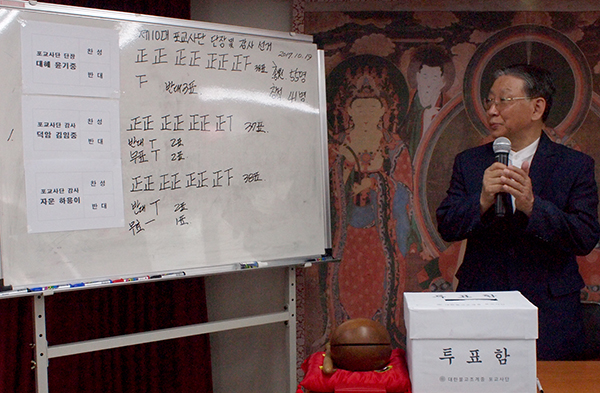 제10대 포교사단 단장 및 감사 선거
2017.10.19
포교사단 단장
대혜 윤기중
찬성
반대
正正 正正 正正下 38표
下 반대 3표
41명
포교사단 감사
덕암 김힘중
찬성
반대
正正 正正 正丅 37표
반대 丅 2표
무표 丅 2표
포교사단 감사
자운 하음이
찬성
반대
正正 正正 正正下 38표
반대 丅 2표
무표 一 1표
투표함
투표함
대한불교조계종 포교사단